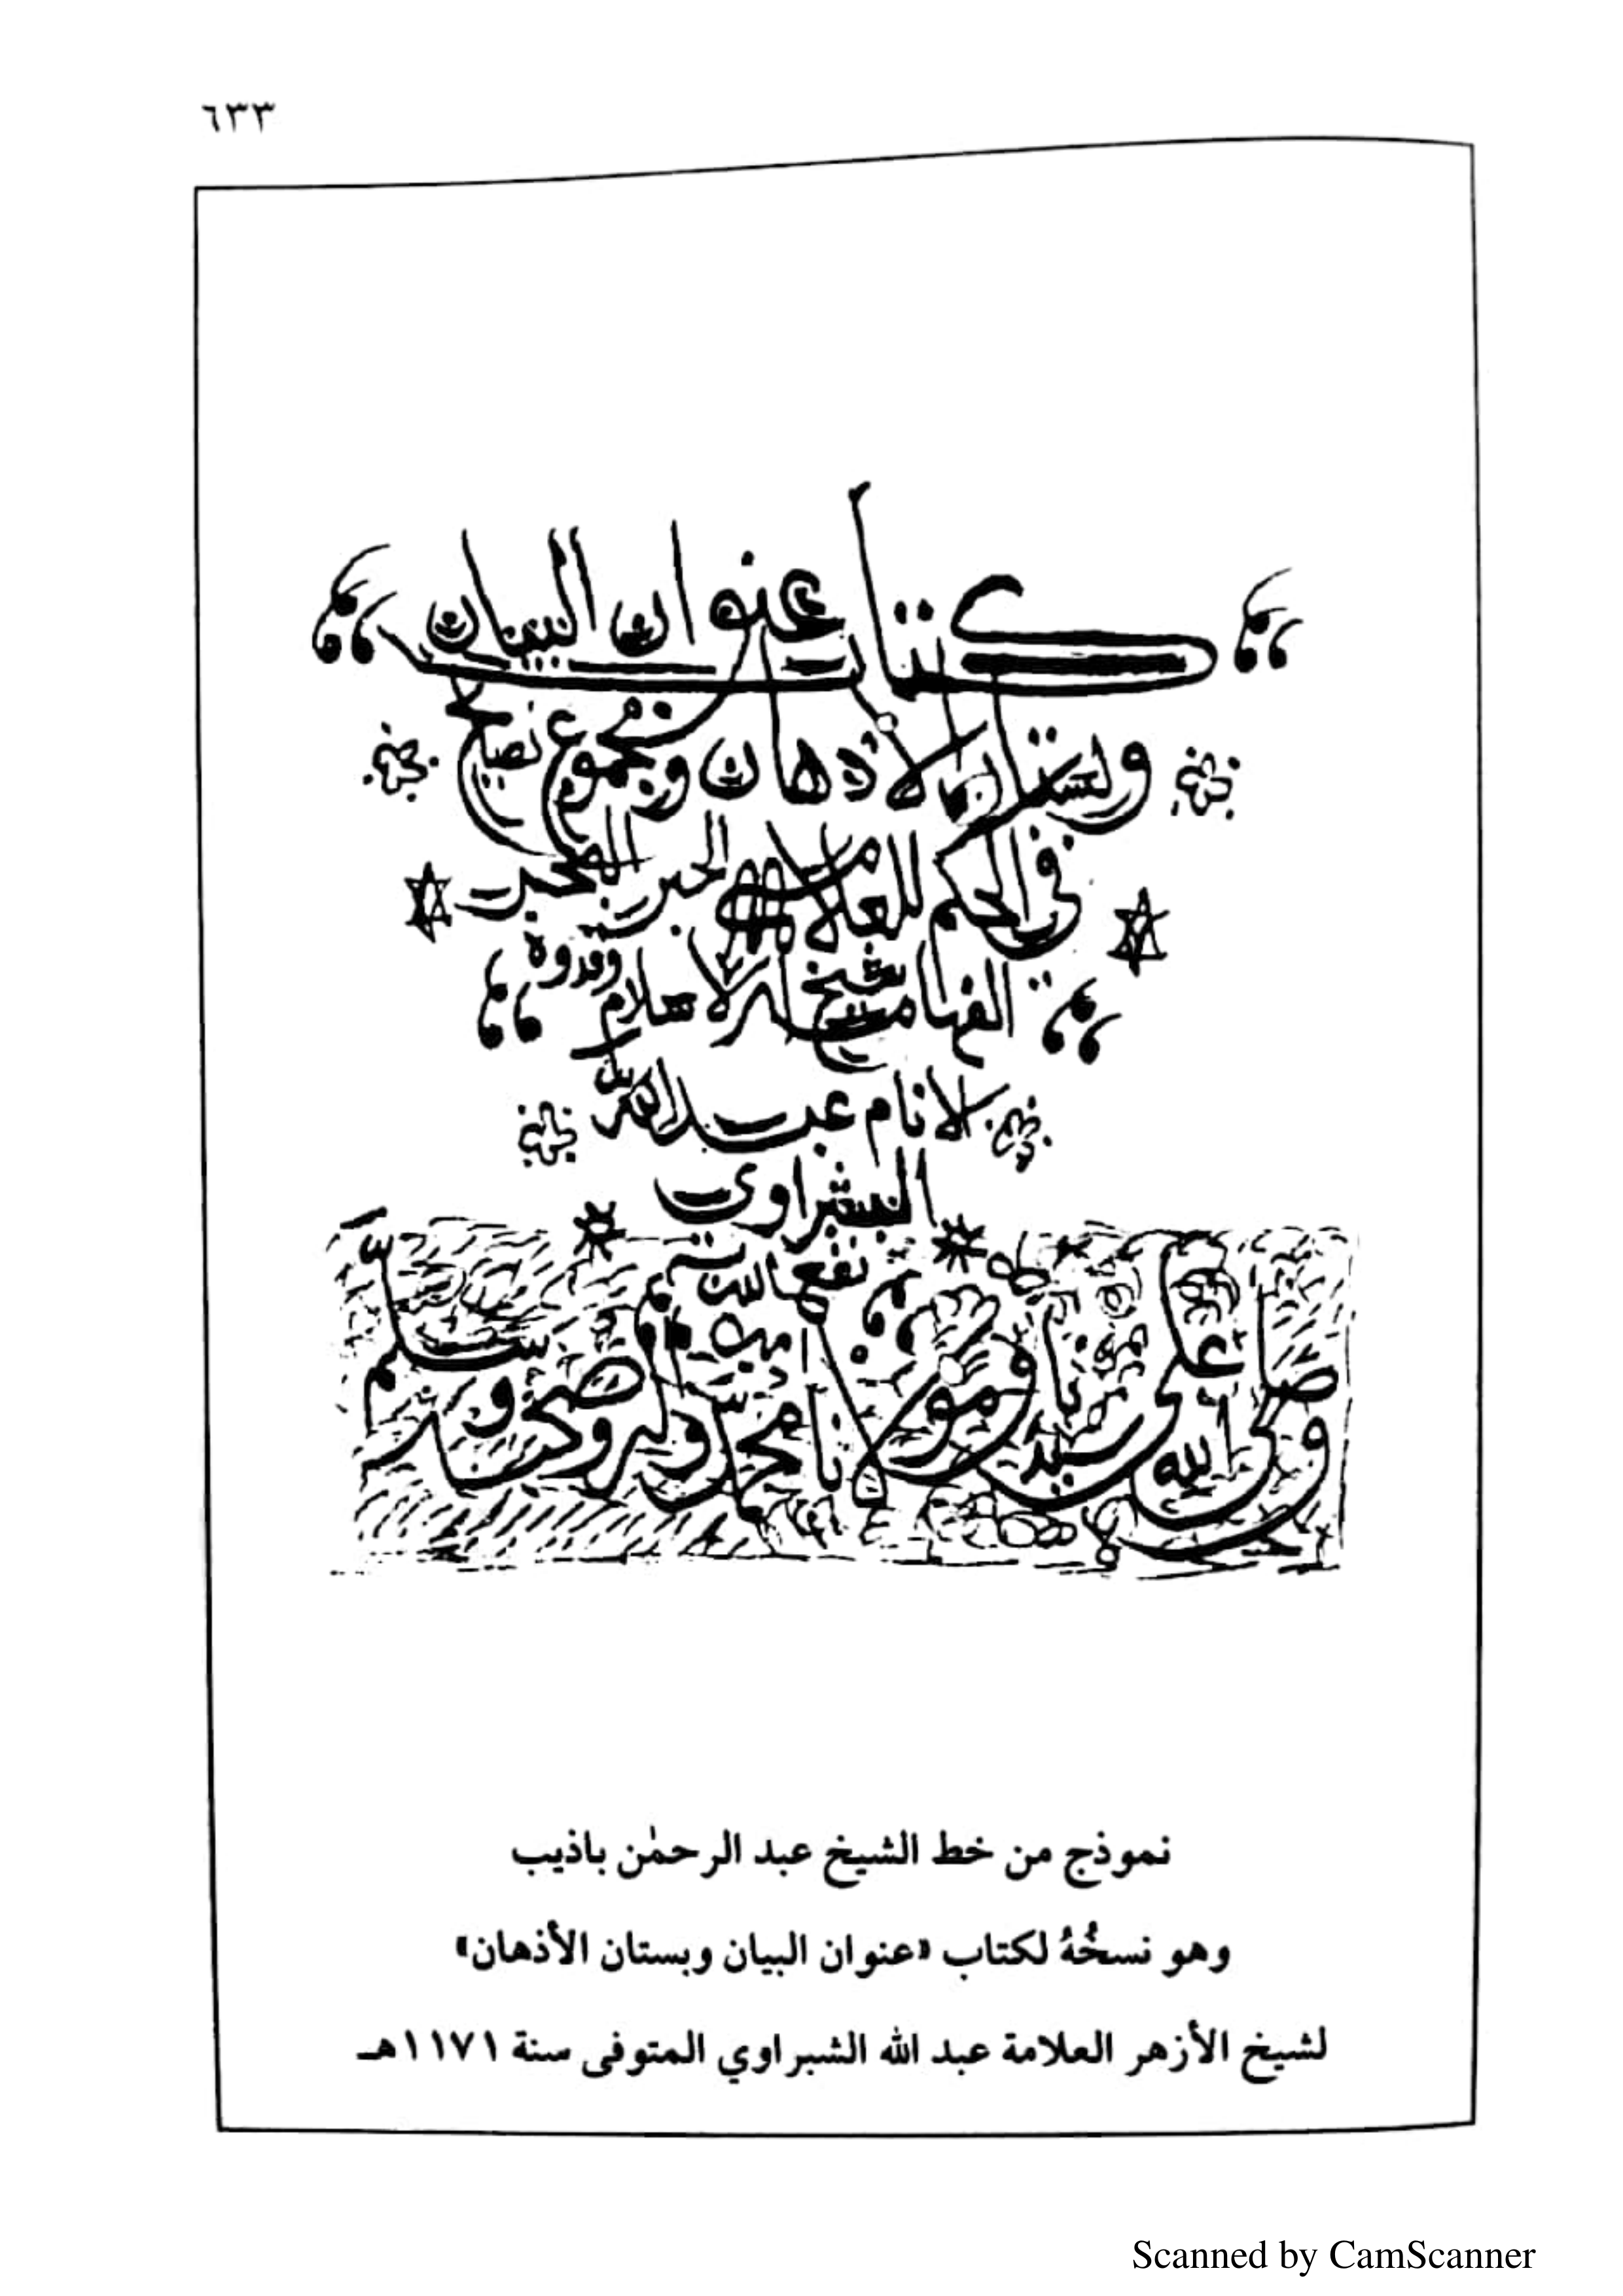 ٦٣٣
كتاب عنوان البيان
وبستان الاذهان ومجموع نصايح
في الحكم للعلامة الحبر
الفهامة شيخ الاسلام وقدوة
الانام عبد الله
الشبراوي
نفعنا الله به
امين
وصلى الله على سيدنا ومولانا محمد وآله وصحبه وسلم
نموذج من خط الشيخ عبد الرحمٰن باذيب
وهو نسخُهُ لكتاب «عنوان البيان وبستان الأذهان»
لشيخ الأزهر العلامة عبد الله الشبراوي المتوفى سنة ١١٧١هـ
Scanned by CamScanner